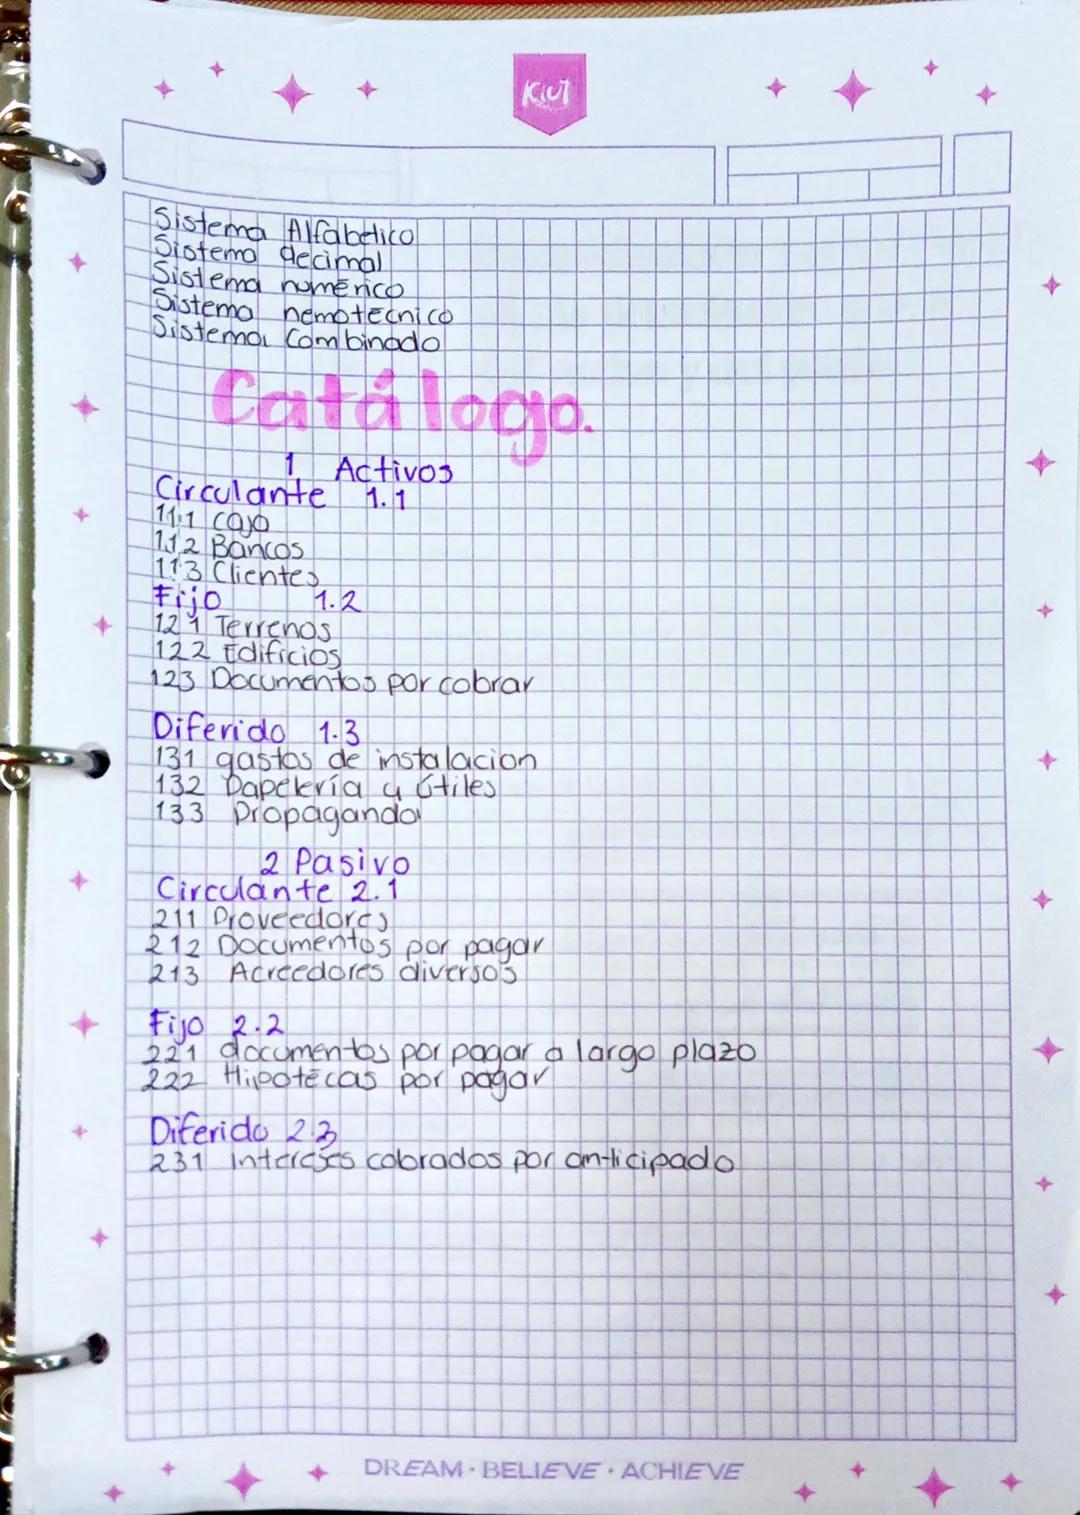 Kiut
Sistema Alfabetico
Sistema decimal
Sistema numérico
Sistema nemotecnico
Sistema Combinado
Catálogo.
1 Activos
Circulante 1.1
11.1 caja
1.1.2 Bancos
113 Clientes
Fijo 1.2
121 Terrenos
122 Edificios
123 Documentos por cobrar
Diferido 1.3
131 gastos de instalacion
132 Papelería y útiles
133 Propaganda
2 Pasivo
Circulante 2.1
211 Proveedores
212 Documentos por pagar
213 Acreedores diversos
Fijo 2.2
221 documentos por pagar a largo plazo
222 Hipotecas por pagar
Diferido 2.3
231 intereses cobrados por anticipado
DREAM · BELIEVE · ACHIEVE